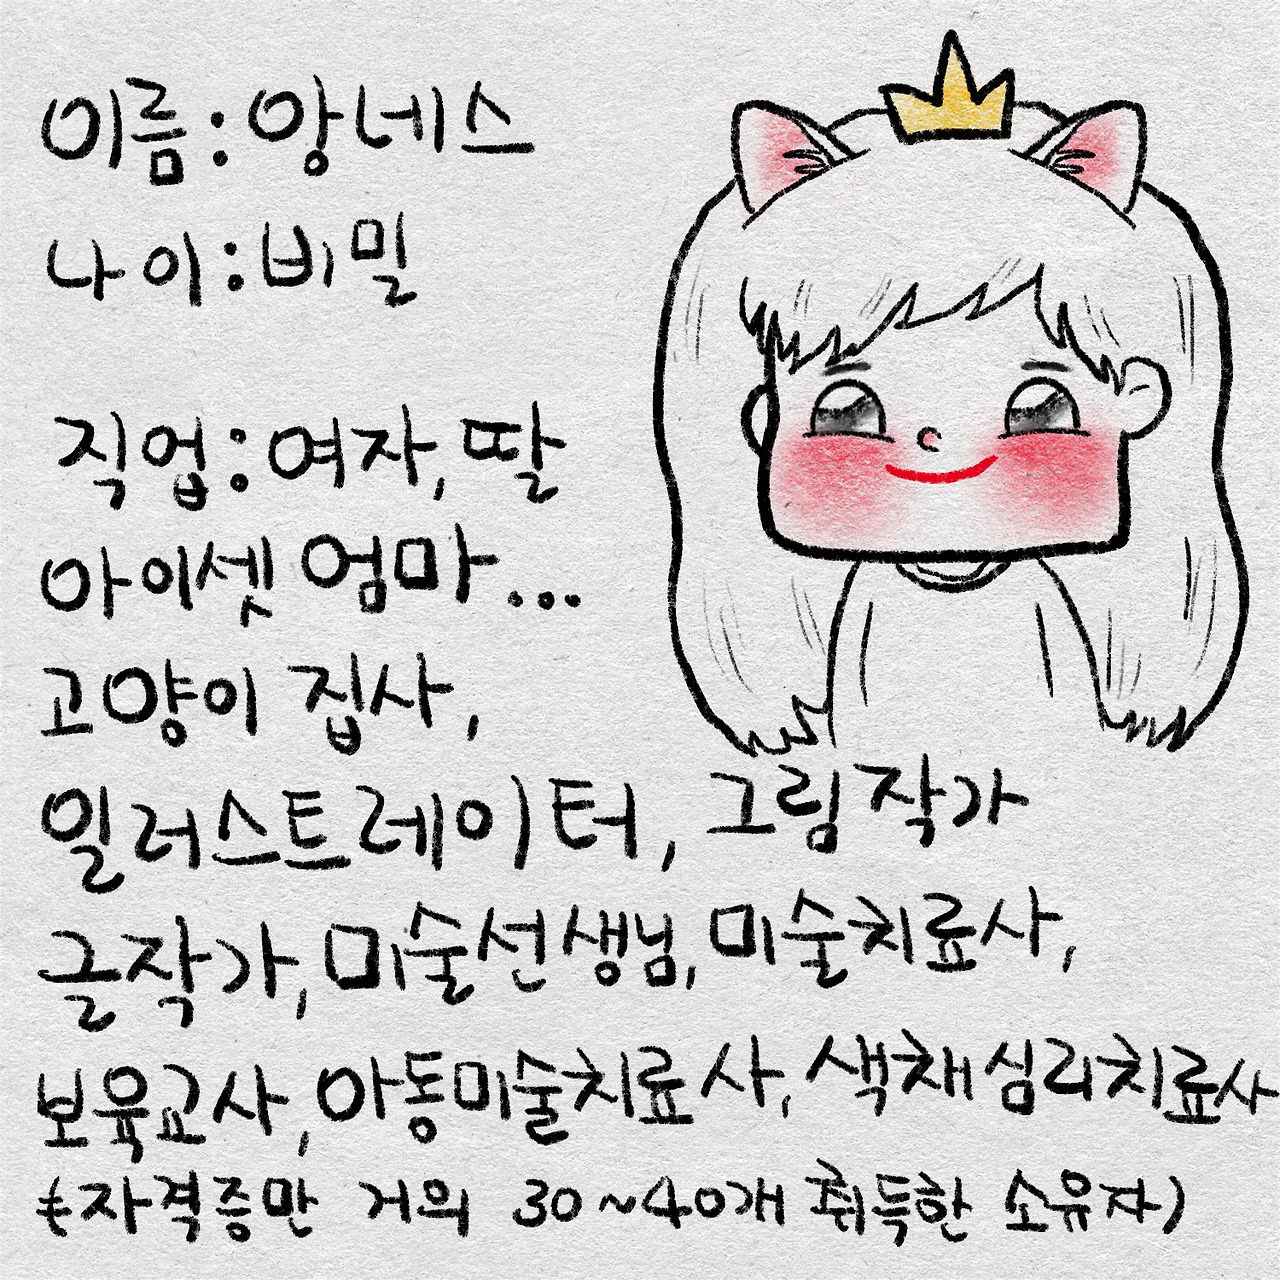 이름:앙네스
나이:비밀
직업:여자,딸
아이셋 엄마...
고양이 집사,
일러스트레이터, 그림작가
글작가, 미술선생님, 미술치료사,
보육교사, 아동미술치료사, 색채심리치료사
자격증만 거의 30~40개 취득한 소유자)